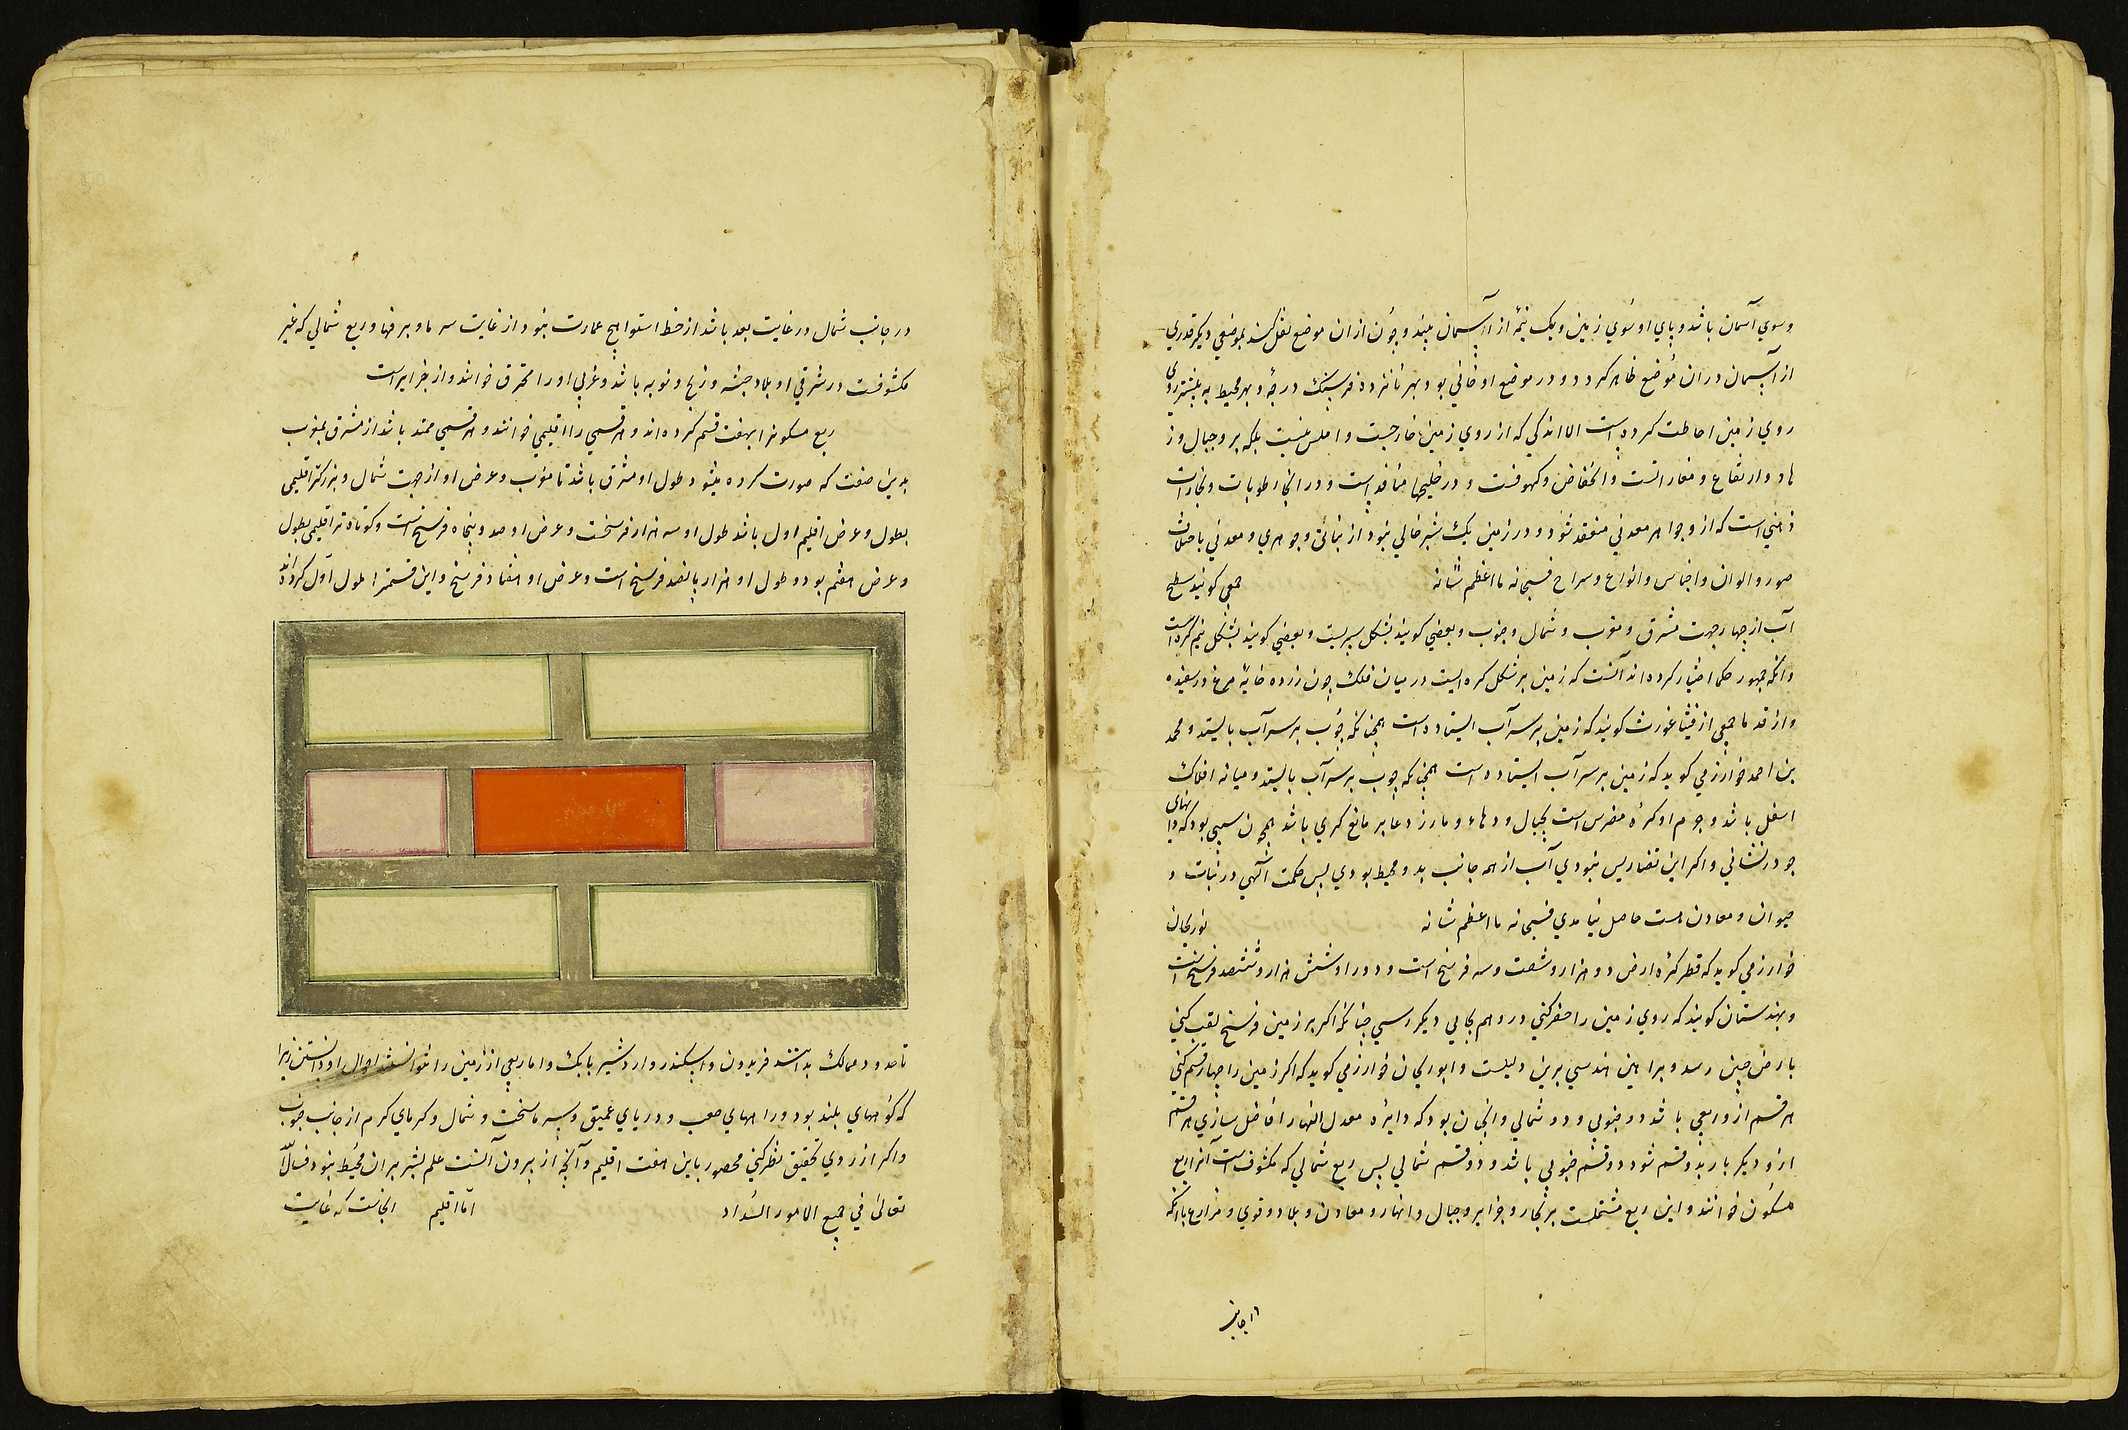 وسوي آسمان باشد و پاي او سوي زمين و يک نيمهٔ از آسمان بيند و چون ازان موضع نقل کند بموضعي ديکر قدري
از آسمان دران موضع ظاهر کردد و در موضع او خافي بود بهر نانزده فرسنک درجهٔ و بهر محيط به بيشتر روي
روي زمين احاطت کرده است الا اندکي که از روي زمين خارجست و املس نيست بلکه پر وجبال و ز
هاد و ارتفاع و مغاراتست و انخفاض و کهوفست و در خليجها منافذ است و در انجا رطوبات و بخارات
ذهني است که از و جواهر معدني منعقد شود و در زمين يک شبر خالي نبود از نباتي و جوهري و معدني باختلاف
صور و الوان و اجناس و انواع و سراح فسبحانه ما اعظم شانه جمعي کويند سطح
آب از چهار جهت مشرق و مغرب و شمال و جنوب و بعضي کويند بشکل سپريست و بعضي کويند بشکل نيم کره است
و انکه جمهور حکما اختيار کرده اند آنست که زمين بر شکل کره ايست در ميان فلک چون زرده خايهٔ مرغ در سفيده
و از قدما جمعي از فيثاغورث کويند که زمين بر سر آب ايستاده است همچنانکه چوب بر سر آب بايستد و محمد
بن احمد خوارزمي کويد که زمين بر سر آب ايستاده است همچنانکه چوب بر سر آب بايستد و ميانه افلاک
اسفل باشد و جرم او کرهٔ مضرس است بجبال و دهاء و مارز دعابر مانع کري باشد همچون سيبي بود که دانهاي
جو در نشاني و اکر اين تضاريس نبودي آب از همه جانب بدو محيط بودي پس حکمت الهي در نبات و
حيوان و معادن هست حاصل نيامدي فسبحانه ما اعظم شانه بوريحان
خوارزمي کويد که قطر کرهٔ ارض دو هزار و شصت و سه فرسخ است و دور او شش هزار و ششصد فرسخ است
و مهندسان کويند که روي زمين را حفر کني در وهم بجايي ديکر رسي چنانکه اکر بر زمين فرسخ نقب کني
بارض چين رسد و براهين هندسي برين دليلست و ابوريحان خوارزمي کويد که اکر زمين را چهار قسم کني
هر قسم ازو ربعي باشد دو جنوبي و دو شمالي و انچنان بود که دايره معدل النهار را فاضل سازي هر قسم
ازو ديکر بار بدو قسم شود دو قسم جنوبي باشد و دو قسم شمالي پس ربع شمالي که مکشوف است آنرا ربع
مسکون خوانند و اين ربع مشتملست بر بحار و جزاير و جبال و انهار و معادن و بلاد و قوي و مزارع با انکه
در جانب شمال در غايت بعد باشد از خط استوا هيچ عمارت نبود از غايت سرما و برفها و ربع شمالي که غير
مکشوفست در شرقي او بلاد حبشه و زنج و نوبه باشد و غربي او را محترق خوانند و از جزاير است
ربع مسکونرا بهفت قسم کرده اند و هر قسمي را اقليمي خوانند و هر قسمي ممتد باشد از مشرق بمغرب
بدين صفت که صورت کرده ميشود طول او مشرق باشد تا مغرب و عرض او از جهت شمال و بزرکتر اقليمي
بطول و عرض اقليم اول باشد طول او سه هزار فرسخست و عرض او صد و پنجاه فرسخ است و کوتاه تر اقليمي بطول
و عرض هفتم بود و طول او هزار و پانصد فرسخ است و عرض او هفتاد فرسخ و اين قسمت را طول اول کرده اند
تا حدود ممالک بدانند فريدون و اسکندر و اردشير بابک و اما ربعي از زمين را نتوانستند احوال او دانستن زيرا
که کوههاي بلند بود و راههاي صعب و درياي عميق و سرما سخت و شمال و کرماي کرم از جانب جنوب
و اکر از روي تحقيق نظر کني محصور باين هفت اقليم و آنچه از بيرون آنست علم بشر بران محيط نبود فسال الله
تعالي في جميع الامور السداد اما اقليم انجاست که غايت